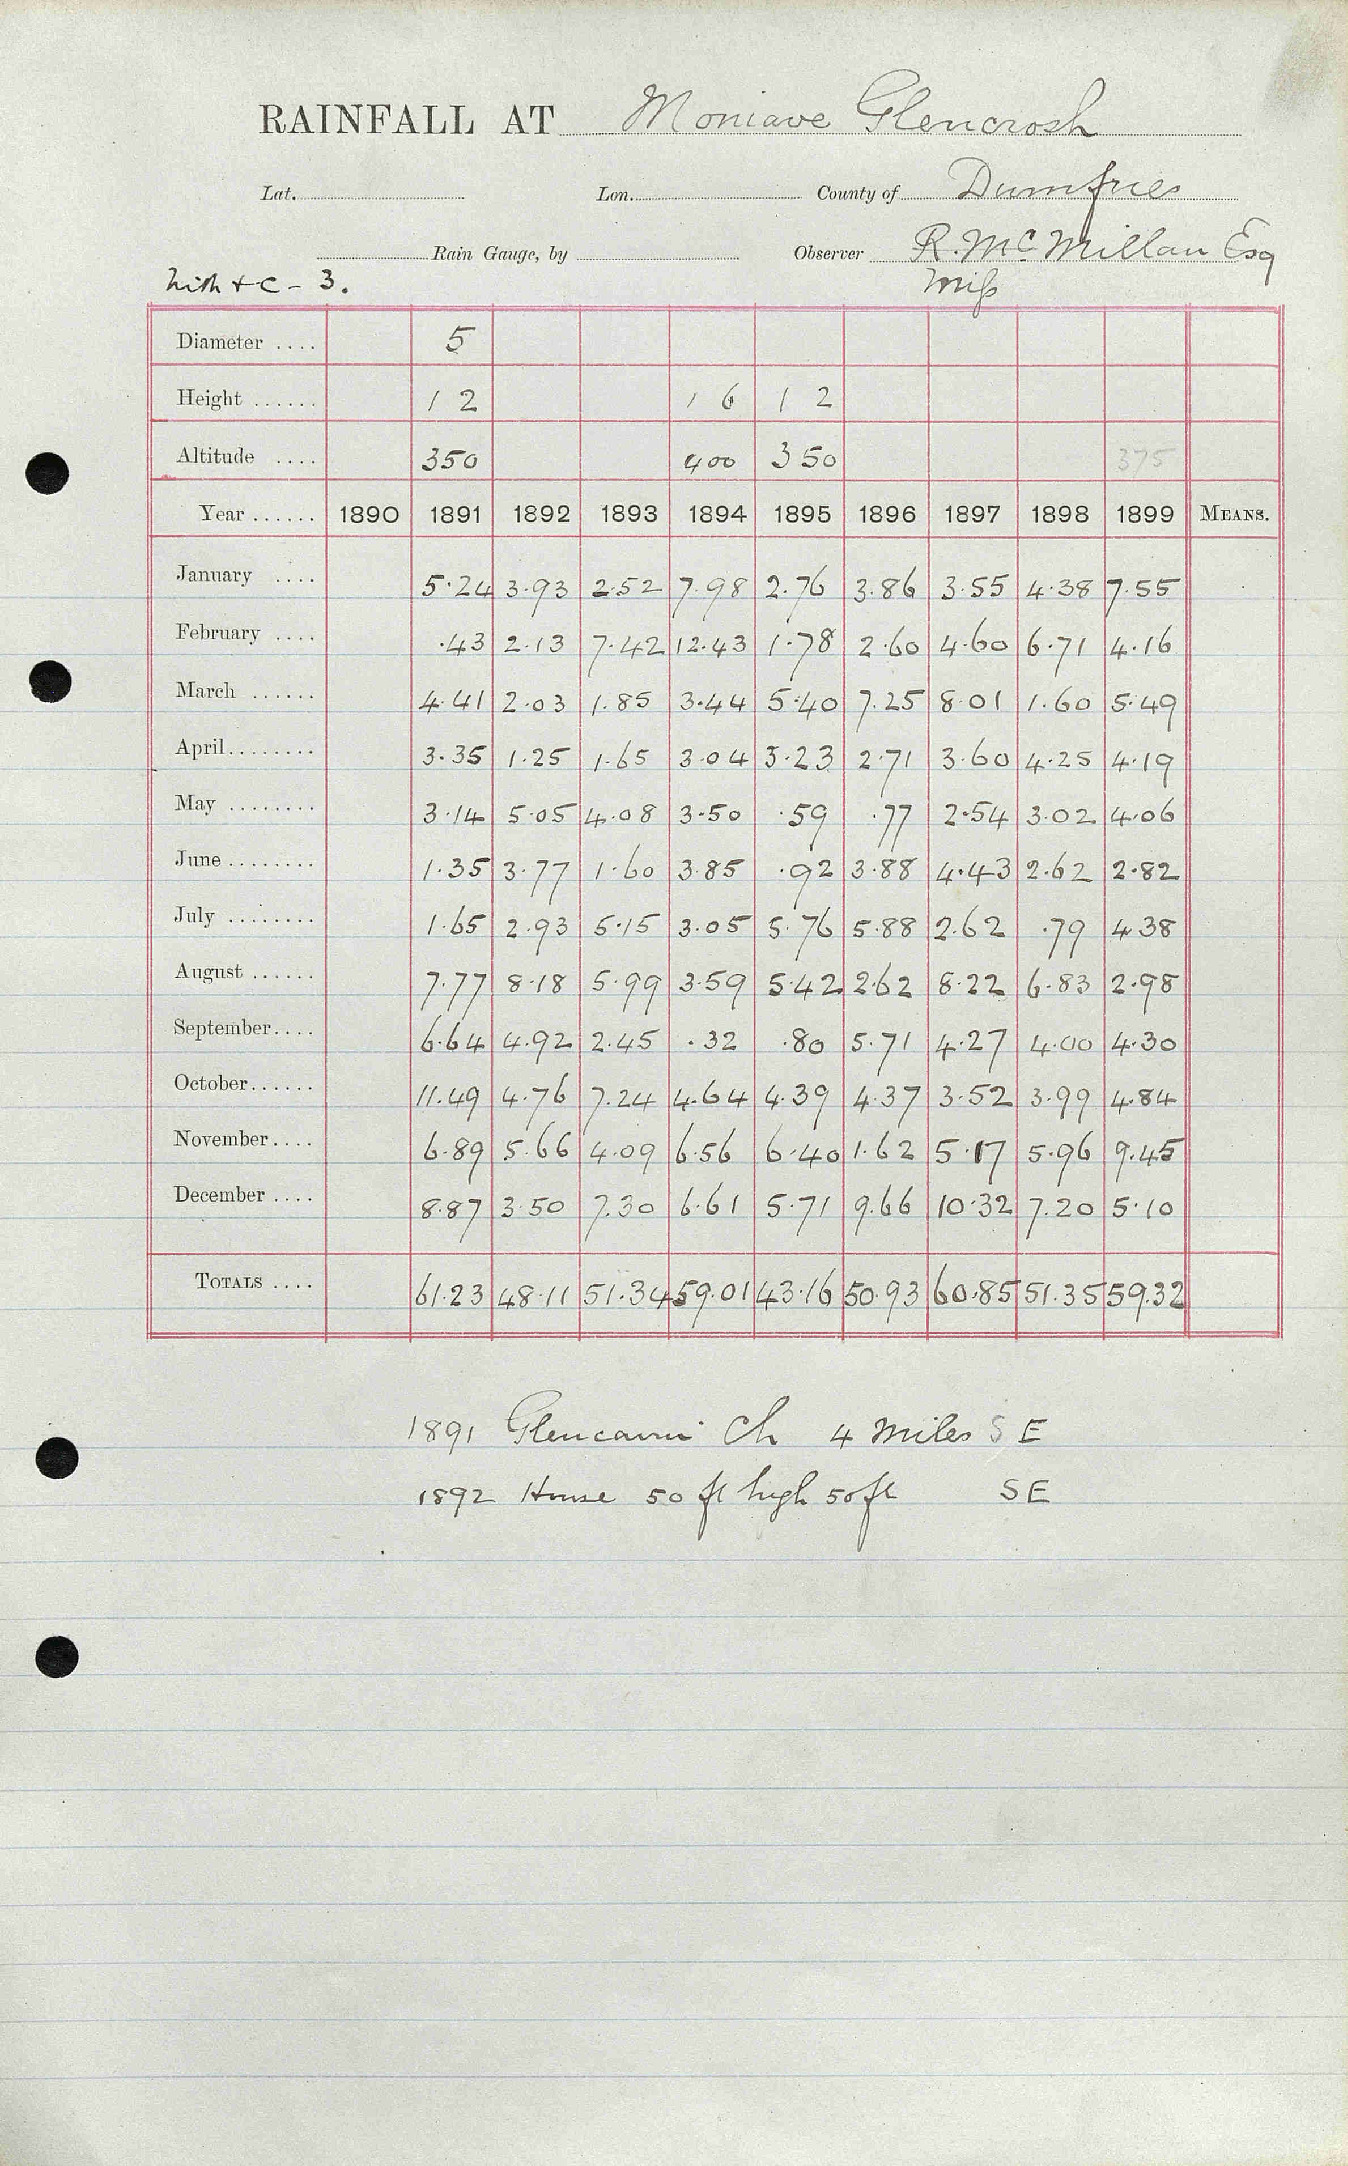 RAINFALL AT Moniaive Glencrosh
Lat. Lon. County of Dumfries
Rain Gauge, by Observer R. McMillan Esq
Nith + C - 3. Miss
Diameter .... 5
Height ...... 1 2 1 6 1 2
Altitude .... 350 400 350 375
Year ...... 1890 1891 1892 1893 1894 1895 1896 1897 1898 1899 MEANS.
January .... 5.24 3.93 2.52 7.98 2.76 3.86 3.55 4.38 7.55
February .... .43 2.13 7.42 12.43 1.78 2.60 4.60 6.71 4.16
March ...... 4.41 2.03 1.85 3.44 5.40 7.25 8.01 1.60 5.49
April........ 3.35 1.25 1.65 3.04 3.23 2.71 3.60 4.25 4.19
May ........ 3.14 5.05 4.08 3.50 .59 .77 2.54 3.02 4.06
June ........ 1.35 3.77 1.60 3.85 .92 3.88 4.43 2.62 2.82
July ........ 1.65 2.93 5.15 3.05 5.76 5.88 2.62 .79 4.38
August ...... 7.77 8.18 5.99 3.59 5.42 2.62 8.22 6.83 2.98
September.... 6.64 4.92 2.45 .32 .80 5.71 4.27 4.00 4.30
October...... 11.49 4.76 7.24 4.64 4.39 4.37 3.52 3.99 4.84
November.... 6.89 5.66 4.09 6.56 6.40 1.62 5.17 5.96 9.45
December .... 8.87 3.50 7.30 6.61 5.71 9.66 10.32 7.20 5.10
TOTALS .... 61.23 48.11 51.34 59.01 43.16 50.93 60.85 51.35 59.32
1891 Glencairn Ch 4 Miles S E
1892 House 50 ft high 50 ft SE